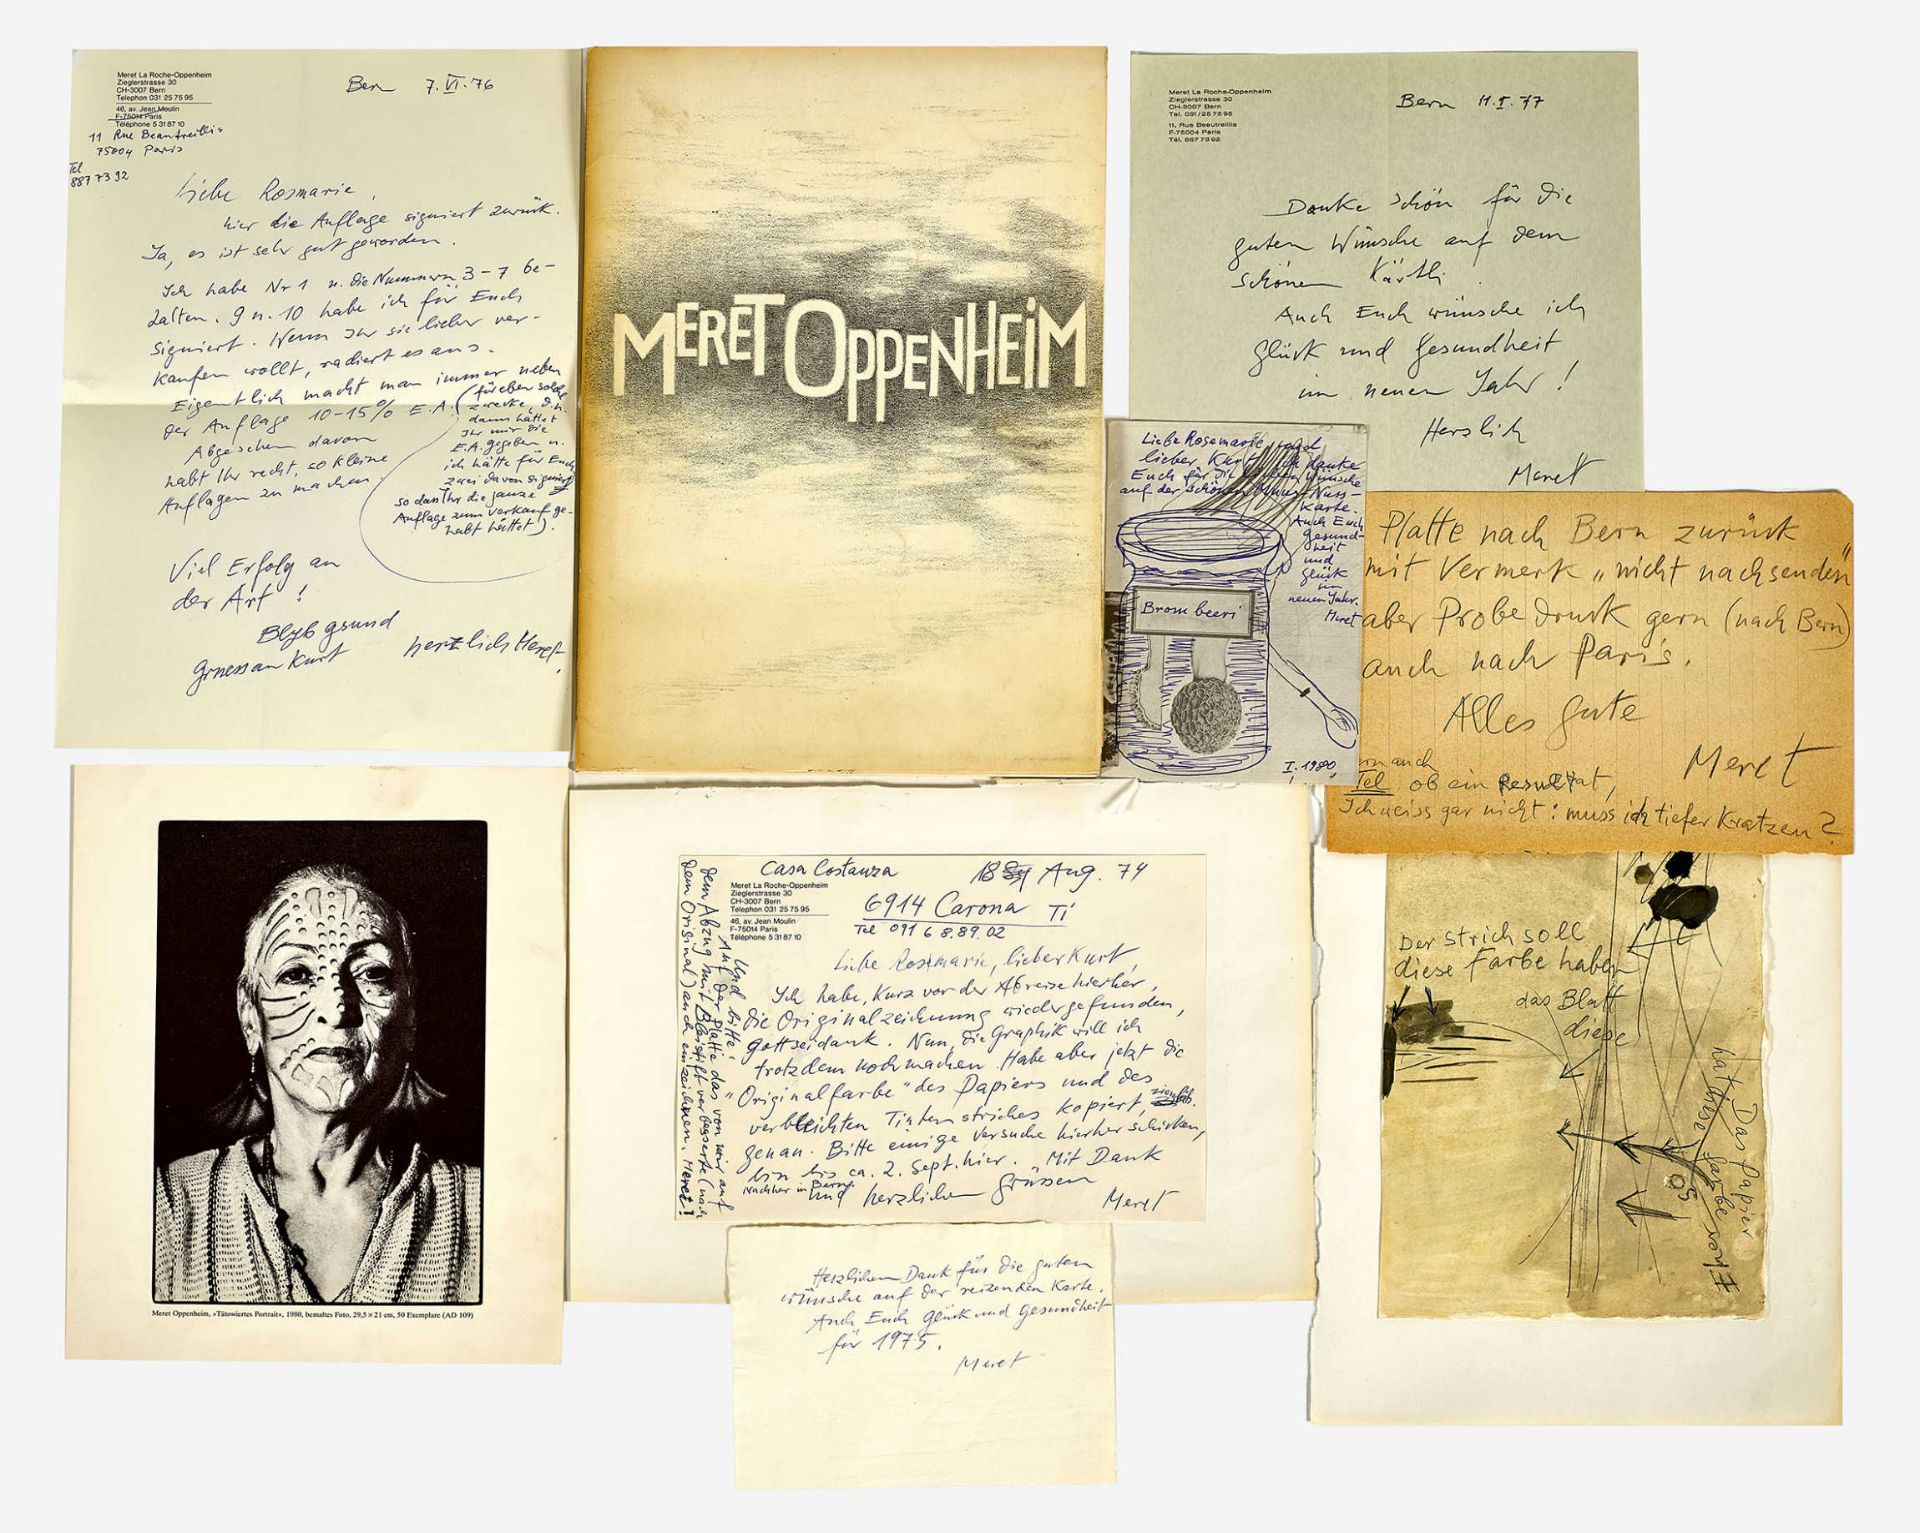 Meret La Roche-Oppenheim
Zieglerstrasse 30
CH-3007 Bern
Telephon 031 25 75 95
46, av. Jean Moulin
F-75014 Paris
Téléphone 5 31 87 10
11 Rue Beautreillis
75004 Paris
Tel
887 73 92
Bern 7. VI. 76
Liebe Rosmarie,
hier die Auflage signiert zurück.
Ja, es ist sehr gut geworden.
Ich habe Nr 1 u. die Nummern 3-7 be-
halten. 9 u. 10 habe ich für Euch
signiert. Wenn Ihr sie lieber ver-
kaufen wollt, radiert es aus.
Eigentlich macht man immer neben
der Auflage 10-15% E.A. (für eben solche
zwecke, d.h.
dann hättet
Ihr mir die
E.A. gegeben u.
ich hätte für Euch
zwei davon signiert
so dass Ihr die ganze
Auflage zum verkauf ge-
habt hättet).
Abgesehen davon
habt Ihr recht, so kleine
Auflagen zu machen.
Viel Erfolg an
der Art!
Blyb gsund
Gruess an Kurt
herzlich Meret
MERET OPPENHEIM
Meret La Roche-Oppenheim
Zieglerstrasse 30
CH-3007 Bern
Tel. 031/25 75 95
11, Rue Beautreillis
F-75004 Paris
Tél. 887 73 92
Bern 11. I. 77
Danke schön für die
guten Wünsche auf dem
schönen Kärtli.
Auch Euch wünsche ich
Glück und Gesundheit
im neuen Jahr!
Herzlich
Meret
Liebe Rosemarie und
lieber Kurt, ich danke
Euch für die Wünsche
auf der schönen Nuss-
Karte.
Auch Euch
gesund-
heit
und
glück
im
neuen Jahr.
Meret
Brombeeri
I. 1980
Platte nach Bern zurück
mit Vermerk „nicht nachsenden"
aber Probedruck gern (nach Bern)
auch nach Paris.
Alles Gute
Meret
auch
Tel ob ein Resultat,
Ich weiss gar nicht: muss ich tiefer Kratzen?
Meret Oppenheim, »Tätowiertes Portrait«, 1980, bemaltes Foto, 29,5 × 21 cm, 50 Exemplare (AD 109)
Casa Costanza
18 Aug. 74
Meret La Roche-Oppenheim
Zieglerstrasse 30
CH-3007 Bern
Telephon 031 25 75 95
46, av. Jean Moulin
F-75014 Paris
Téléphone 5 31 87 10
6914 Carona Ti
Tel 091 6 8.89.02
Liebe Rosmarie, lieber Kurt,
Ich habe, kurz vor der Abreise hierher,
die Originalzeichnung wiedergefunden,
gottseidank. Nun, die Graphik will ich
trotzdem noch machen. Habe aber jetzt die
"Originalfarbe" des Papiers und des
verbleichten Tintenstriches kopiert, ziemlich
genau. Bitte einige Versuche hierher schicken,
bin bis ca. 2. Sept. hier. Mit Dank
Nachher in Bern.
und herzlichen Grüssen
Meret
Und bitte:
Auf der Platte das von mir auf
dem Abzug mit Bleistift verbesserte (nach
dem Original) auch einzeichnen. Meret!
Herzlichen Dank für die guten
wünsche auf der reizenden Karte.
Auch Euch glück und gesundheit
für 1975.
Meret
Der Strich soll
diese Farbe haben
das Blatt
diese
Das Papier